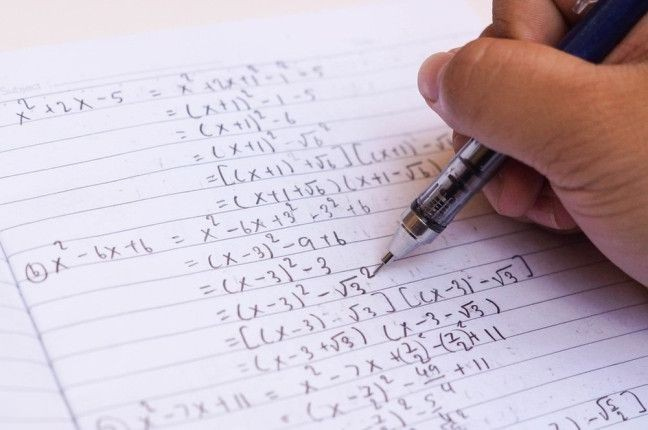 Subject
x² + 2x - 5 = x² + 2x + 1² - 1² - 5
= (x+1)² - 1 - 5
= (x+1)² - 6
= (x+1)² - √6²
= [(x+1) + √6] [(x+1) - √
= (x+1+√6)(x+1-√6)
(b) x² - 6x + 6 = x² - 6x + 3² - 3² + 6
= (x-3)² - 9 + 6
= (x-3)² - 3
= (x-3)² - √3²
= [(x-3) - √3] [(x-3) - √3]
= (x-3+√3) (x-3-√3)
x² - 7x + 11 = x² - 7x + (7/2)² - (7/2)² + 11
(x - 7/2)² - 49/4 + 11
)² 5/4
) - √5/2]